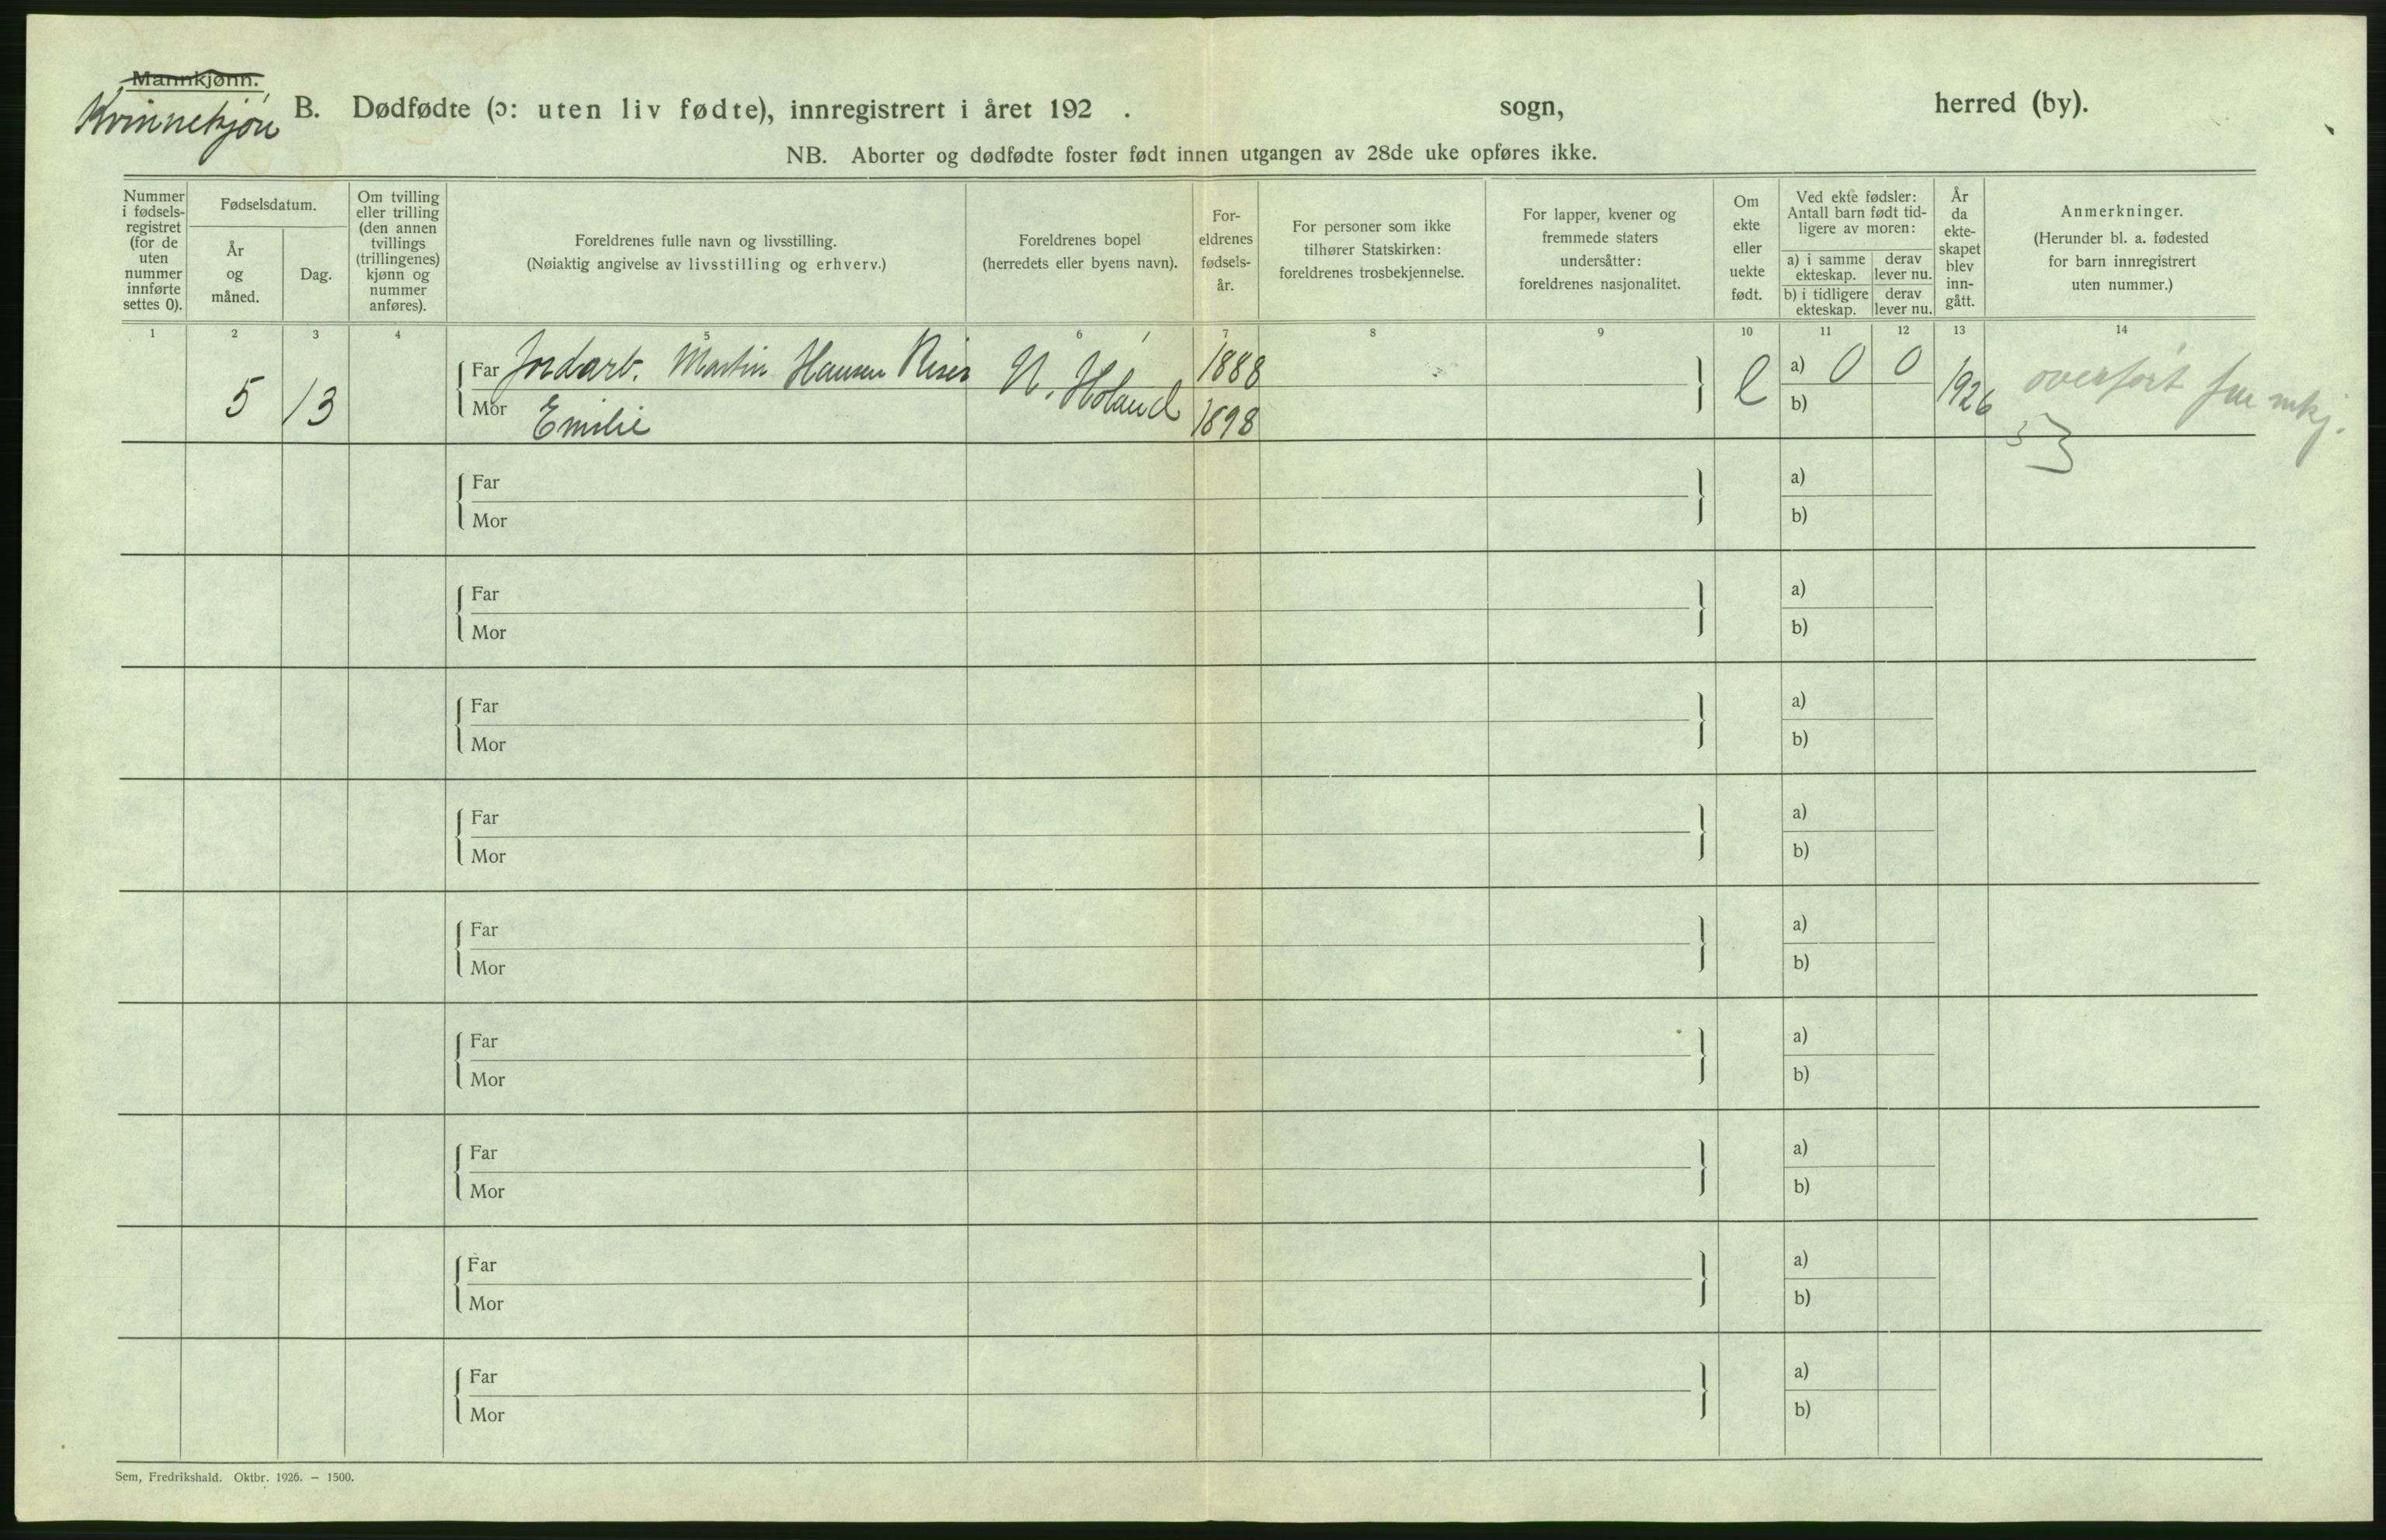 Mannkjønn.
Kvinnekjøn
B. Dødfødte (ɔ: uten liv fødte), innregistrert i året 192 . sogn, herred (by).
NB. Aborter og dødfødte foster født innen utgangen av 28de uke opføres ikke.
Nummer i fødsels-registret (for de uten nummer innførte settes 0).
Fødselsdatum.
År og måned.
Dag.
Om tvilling eller trilling (den annen tvillings (trillingenes) kjønn og nummer anføres).
Foreldrenes fulle navn og livsstilling.
(Nøiaktig angivelse av livsstilling og erhverv.)
Foreldrenes bopel
(herredets eller byens navn).
For-eldrenes fødsels-år.
For personer som ikke tilhører Statskirken: foreldrenes trosbekjennelse.
For lapper, kvener og fremmede staters undersåtter: foreldrenes nasjonalitet.
Om ekte eller uekte født.
Ved ekte fødsler: Antall barn født tid-ligere av moren:
a) i samme ekteskap.
derav lever nu.
b) i tidligere ekteskap.
derav lever nu.
År da ekte-skapet blev inn-gått.
Anmerkninger.
(Herunder bl. a. fødested for barn innregistrert uten nummer.)
1 2 3 4 5 6 7 8 9 10 11 12 13 14
5 13 Far Jordarb. Martin Hansen N. Høland 1888 e a) 0 0 1926 overført fra mkj.
Mor Emilie 1898 b)
Far a)
Mor b)
Far a)
Mor b)
Far a)
Mor b)
Far a)
Mor b)
Far a)
Mor b)
Far a)
Mor b)
Far a)
Mor b)
Far a)
Mor b)
Far a)
Mor b)
Sem, Fredrikshald. Oktbr. 1926. — 1500.